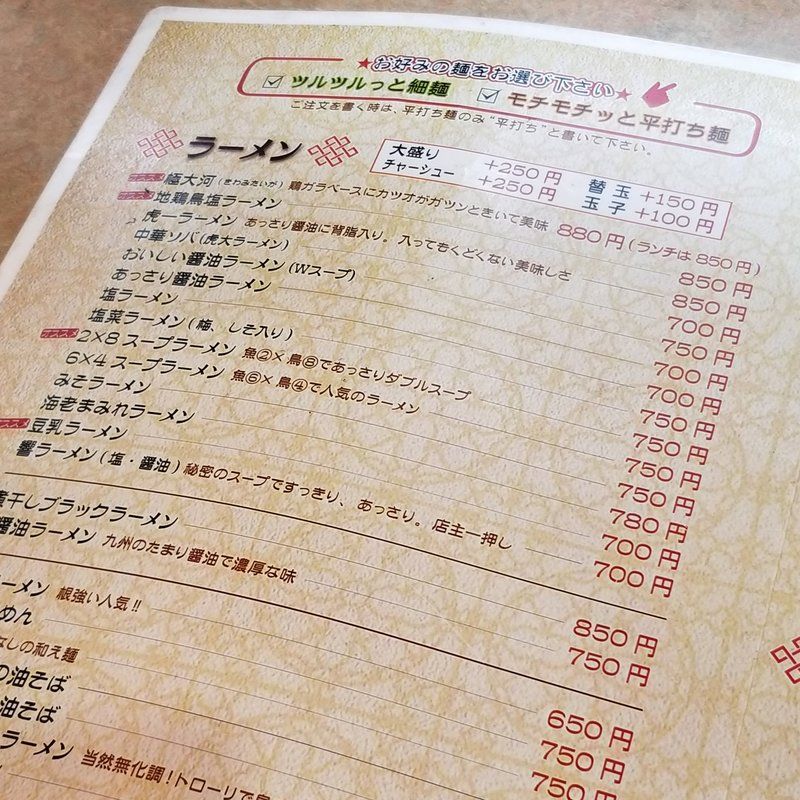 ★お好みの麺をお選び下さい★
☑ ツルツルっと細麺 ☑ モチモチッと平打ち麺
ご注文を書く時は、平打ち麺のみ“平打ち”と書いて下さい。
ラーメン
大盛り +250円 替玉 +150円
チャーシュー +250円 玉子 +100円
オススメ 極大河(きわみたいが) 鶏ガラベースにカツオがガツンときいて美味 880円(ランチは850円)
オススメ 地鶏鳥塩ラーメン 850円
虎一ラーメン あっさり醤油に背脂入り。入ってもくどくない美味しさ 850円
中華ソバ(虎大ラーメン) 700円
おいしい醤油ラーメン(Wスープ) 750円
あっさり醤油ラーメン 700円
塩ラーメン 700円
塩菜ラーメン(梅、しそ入り) 750円
オススメ 2×8スープラーメン 魚②×鳥⑧であっさりダブルスープ 750円
6×4スープラーメン 魚⑥×鳥④で人気のラーメン 750円
みそラーメン 750円
海老まみれラーメン 780円
オススメ 豆乳ラーメン 700円
響ラーメン(塩・醤油) 秘密のスープですっきり、あっさり。店主一押し 700円
煮干しブラックラーメン 850円
醤油ラーメン 九州のたまり醤油で濃厚な味 750円
ーメン 根強い人気!! 650円
めん 750円
なしの和え麺
の油そば 750円
油そば
ラーメン 当然無化調!トローリで